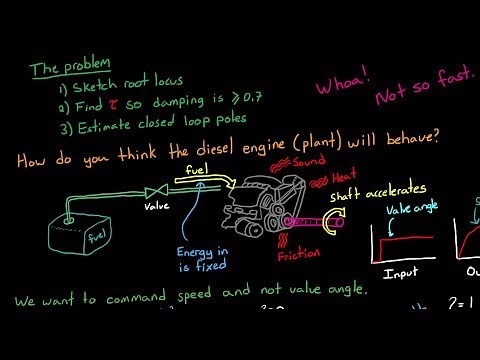 The problem
1) Sketch root locus
2) Find τ so damping is ≥ 0.7
3) Estimate closed loop poles
Whoa!
Not so fast.
How do you think the diesel engine (plant) will behave?
fuel
Sound
Heat
shaft accelerates
Valve
Valve angle
fuel
Energy in
is fixed
Friction
Input
We want to command speed and not valve angle.